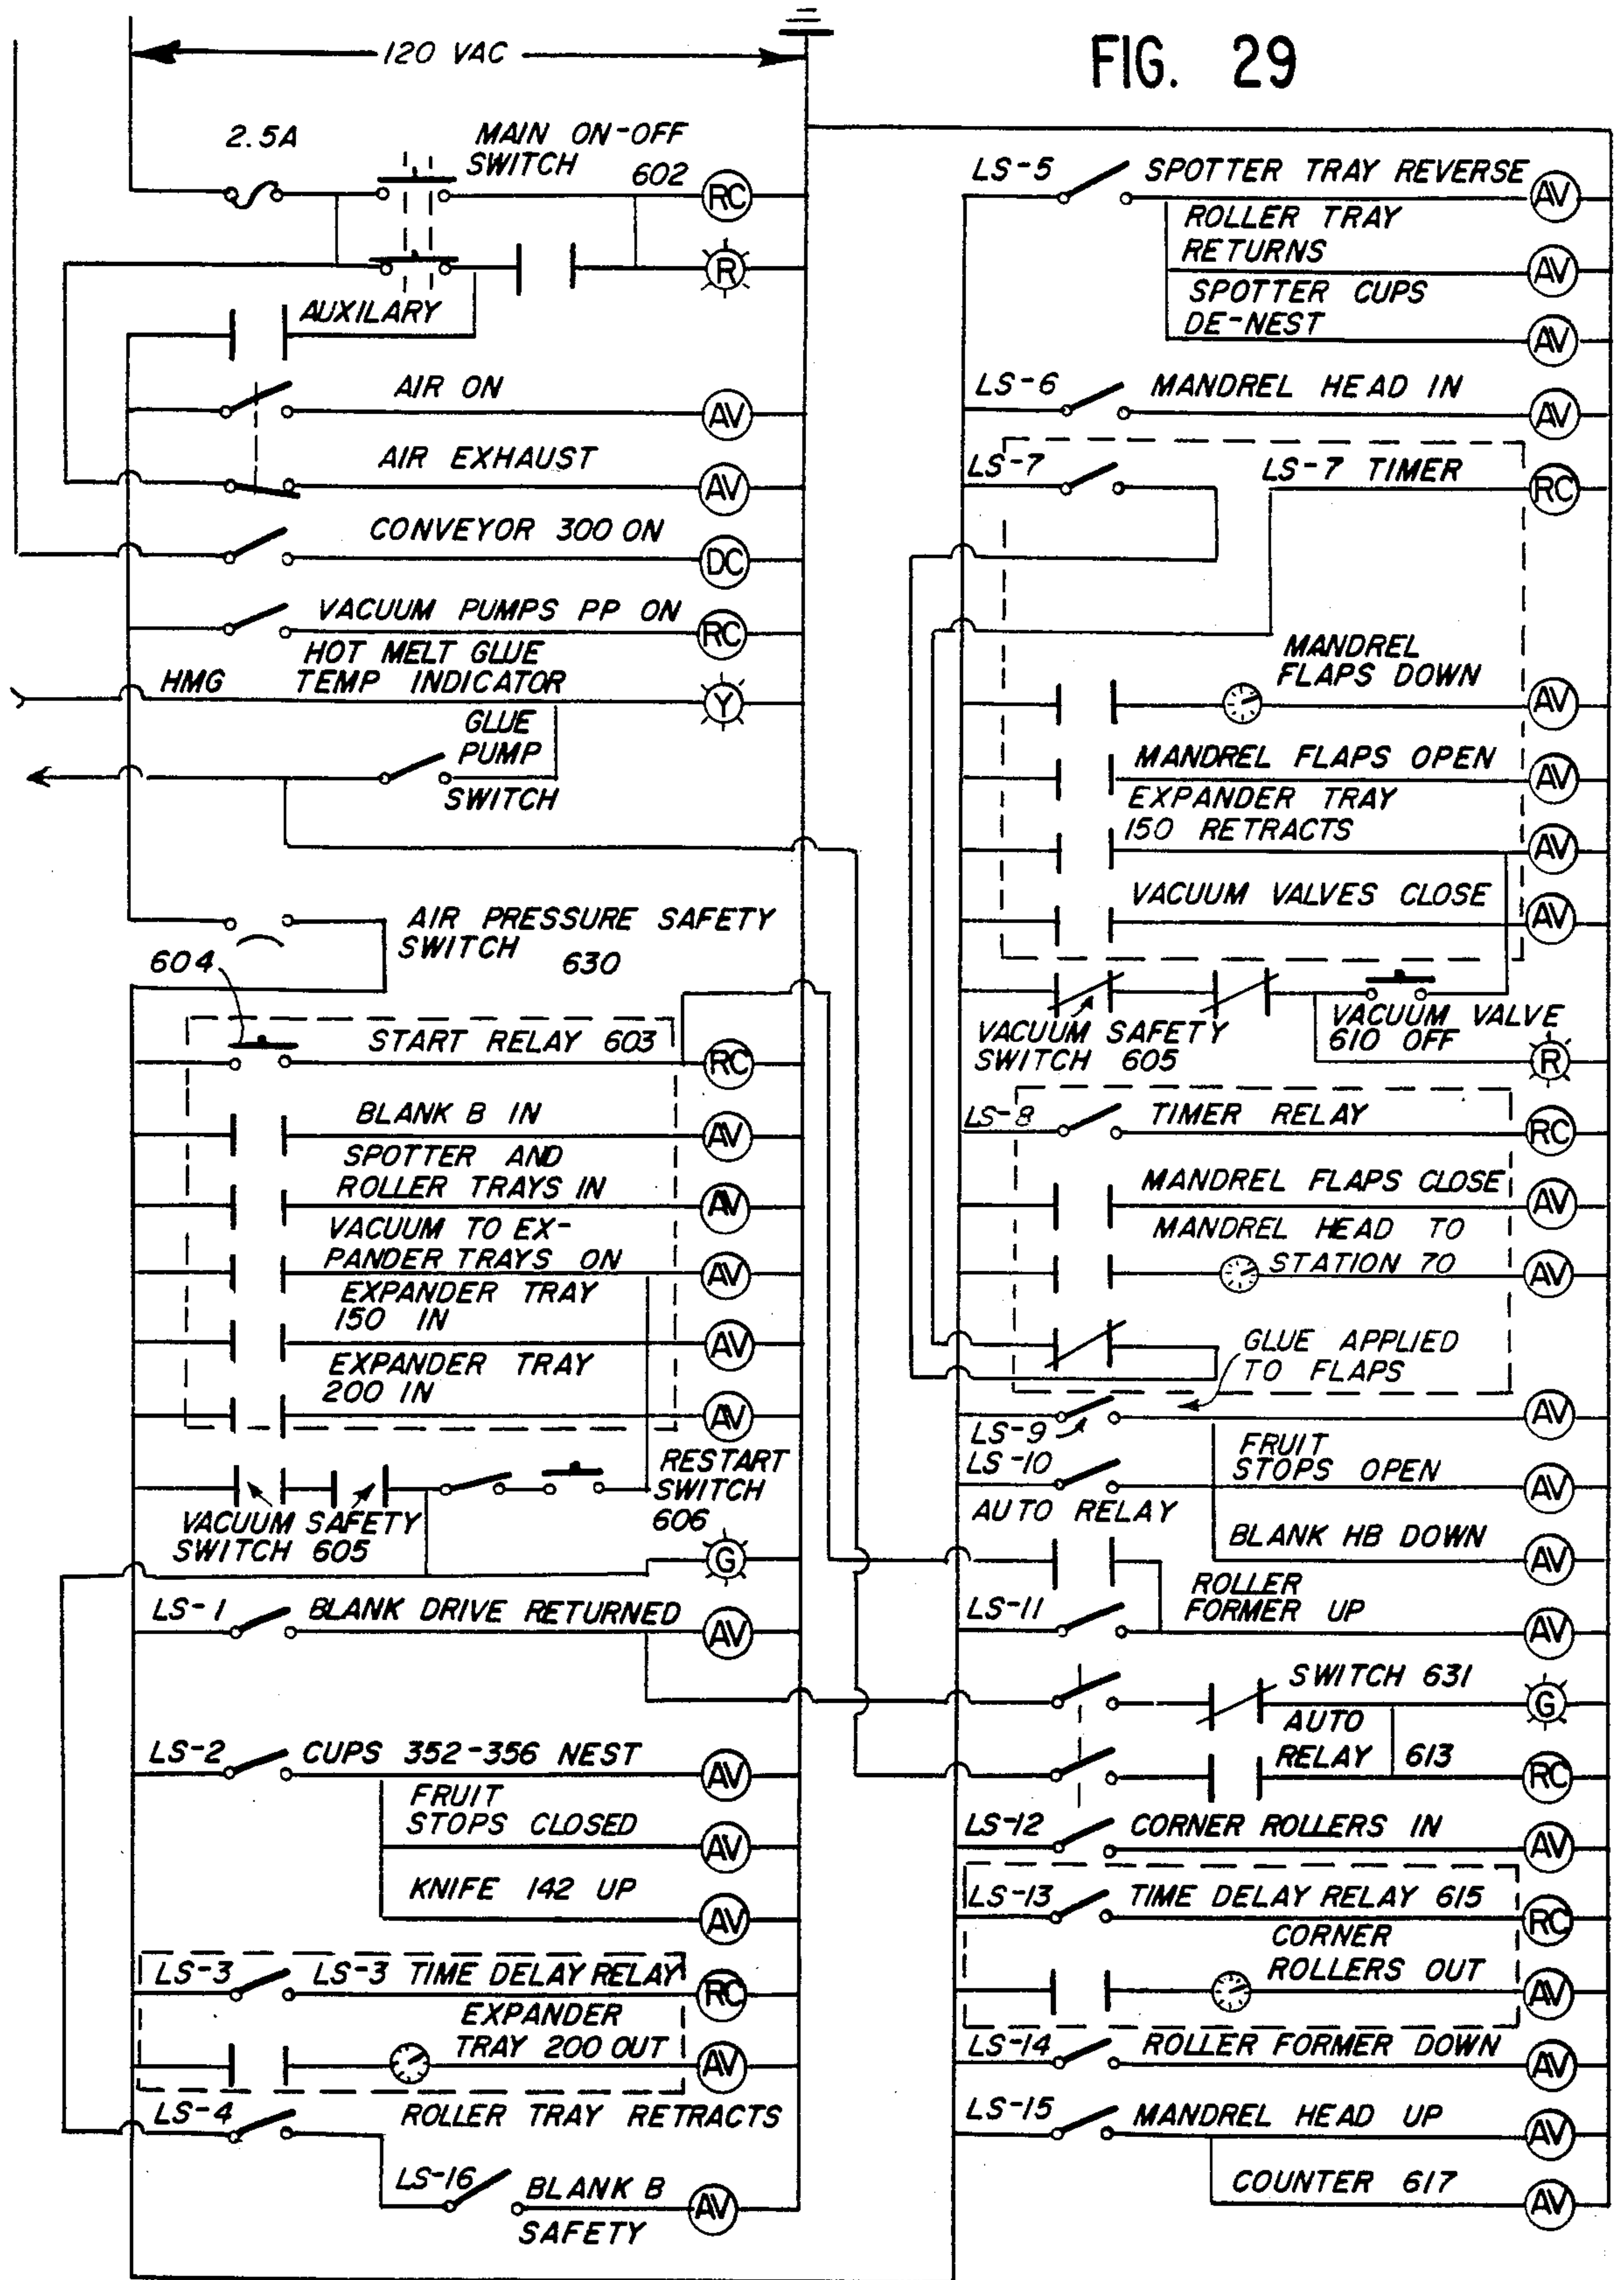 FIG. 29
120 VAC
2.5A
MAIN ON-OFF
SWITCH
602
RC
R
AUXILARY
AIR ON
AV
AIR EXHAUST
AV
CONVEYOR 300 ON
DC
VACUUM PUMPS PP ON
RC
HOT MELT GLUE
HMG TEMP INDICATOR
Y
GLUE
PUMP
SWITCH
AIR PRESSURE SAFETY
SWITCH 630
604
START RELAY 603
RC
BLANK B IN
AV
SPOTTER AND
ROLLER TRAYS IN
AV
VACUUM TO EX-
PANDER TRAYS ON
AV
EXPANDER TRAY
150 IN
AV
EXPANDER TRAY
200 IN
AV
RESTART
SWITCH
606
VACUUM SAFETY
SWITCH 605
G
LS-1 BLANK DRIVE RETURNED
AV
LS-2 CUPS 352-356 NEST
AV
FRUIT
STOPS CLOSED
AV
KNIFE 142 UP
AV
LS-3 LS-3 TIME DELAY RELAY
RC
EXPANDER
TRAY 200 OUT
AV
LS-4 ROLLER TRAY RETRACTS
LS-16 BLANK B
SAFETY
AV
LS-5 SPOTTER TRAY REVERSE
AV
ROLLER TRAY
RETURNS
AV
SPOTTER CUPS
DE-NEST
AV
LS-6 MANDREL HEAD IN
AV
LS-7 LS-7 TIMER
RC
MANDREL
FLAPS DOWN
AV
MANDREL FLAPS OPEN
AV
EXPANDER TRAY
150 RETRACTS
AV
VACUUM VALVES CLOSE
AV
VACUUM SAFETY
SWITCH 605
VACUUM VALVE
610 OFF
R
LS-8 TIMER RELAY
RC
MANDREL FLAPS CLOSE
AV
MANDREL HEAD TO
STATION 70
AV
GLUE APPLIED
TO FLAPS
LS-9
AV
LS-10
FRUIT
STOPS OPEN
AV
AUTO RELAY
BLANK HB DOWN
AV
LS-11
ROLLER
FORMER UP
AV
SWITCH 631
G
AUTO
RELAY 613
RC
LS-12 CORNER ROLLERS IN
AV
LS-13 TIME DELAY RELAY 615
RC
CORNER
ROLLERS OUT
AV
LS-14 ROLLER FORMER DOWN
AV
LS-15 MANDREL HEAD UP
AV
COUNTER 617
AV